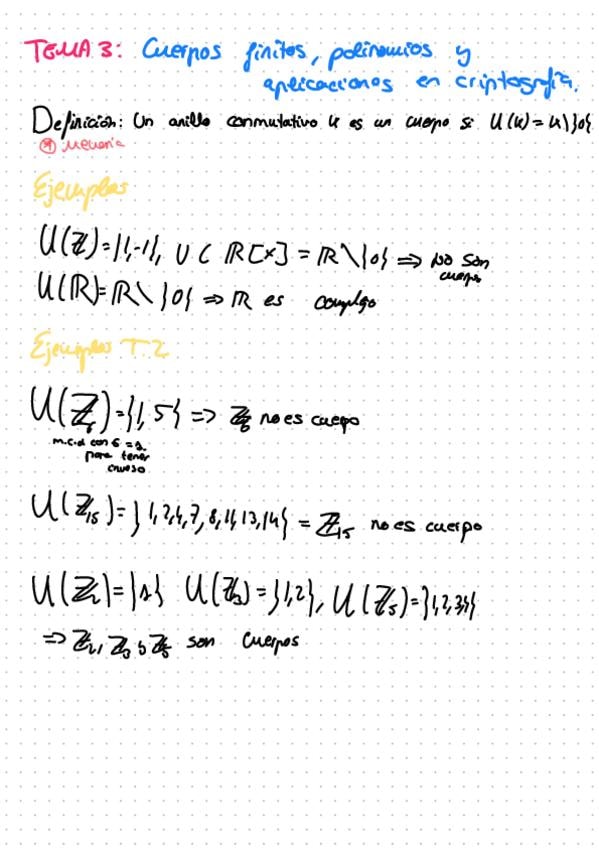 TEMA 3: Cuerpos finitos, polinomios y
aplicaciones en criptografía.
Definición: Un anillo conmutativo K es un cuerpo si U(K) = K\{0}
* Memoria
Ejemplos
U(Z)={1,-1}, U(R[x]) = R\{0} ⇒ No son
cuerpo
U(R)=R\{0} ⇒ R es
Ejemplos T.2
U(Z₆)={1,5} => Z₆ no es cuepo
m.c.d con 6 = 1.
para tener
U(Z₁₅)={1,2,4,7,8,11,13,14} = Z₁₅ no es cuerpo
U(Z₂)={1} U(Z₃)={1,2}, U(Z₅)={1,2,3,4}
=> Z₂, Z₃ y Z₅ son cuerpos